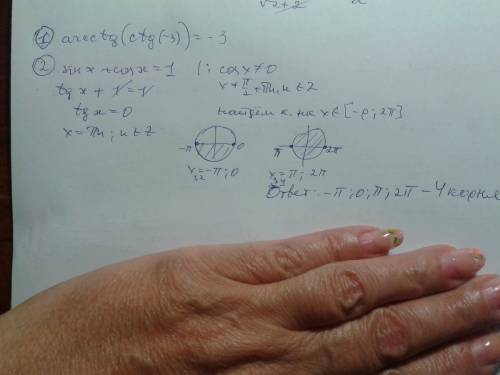 √2+2
① arcctg(ctg(-3)) = -3
② sinx + cosx = 1 |: cosx ≠ 0
tgx + 1 = 1
x ≠ π/2 + πn, n ∈ Z
tgx = 0
найдём к. на x ∈ [-ρ; 2π]
x = πn; n ∈ Z
-π 0 π 2π
x₁,₂ = -π; 0
x₃,₄ = π; 2π
Ответ: -π; 0; π; 2π - 4 корня